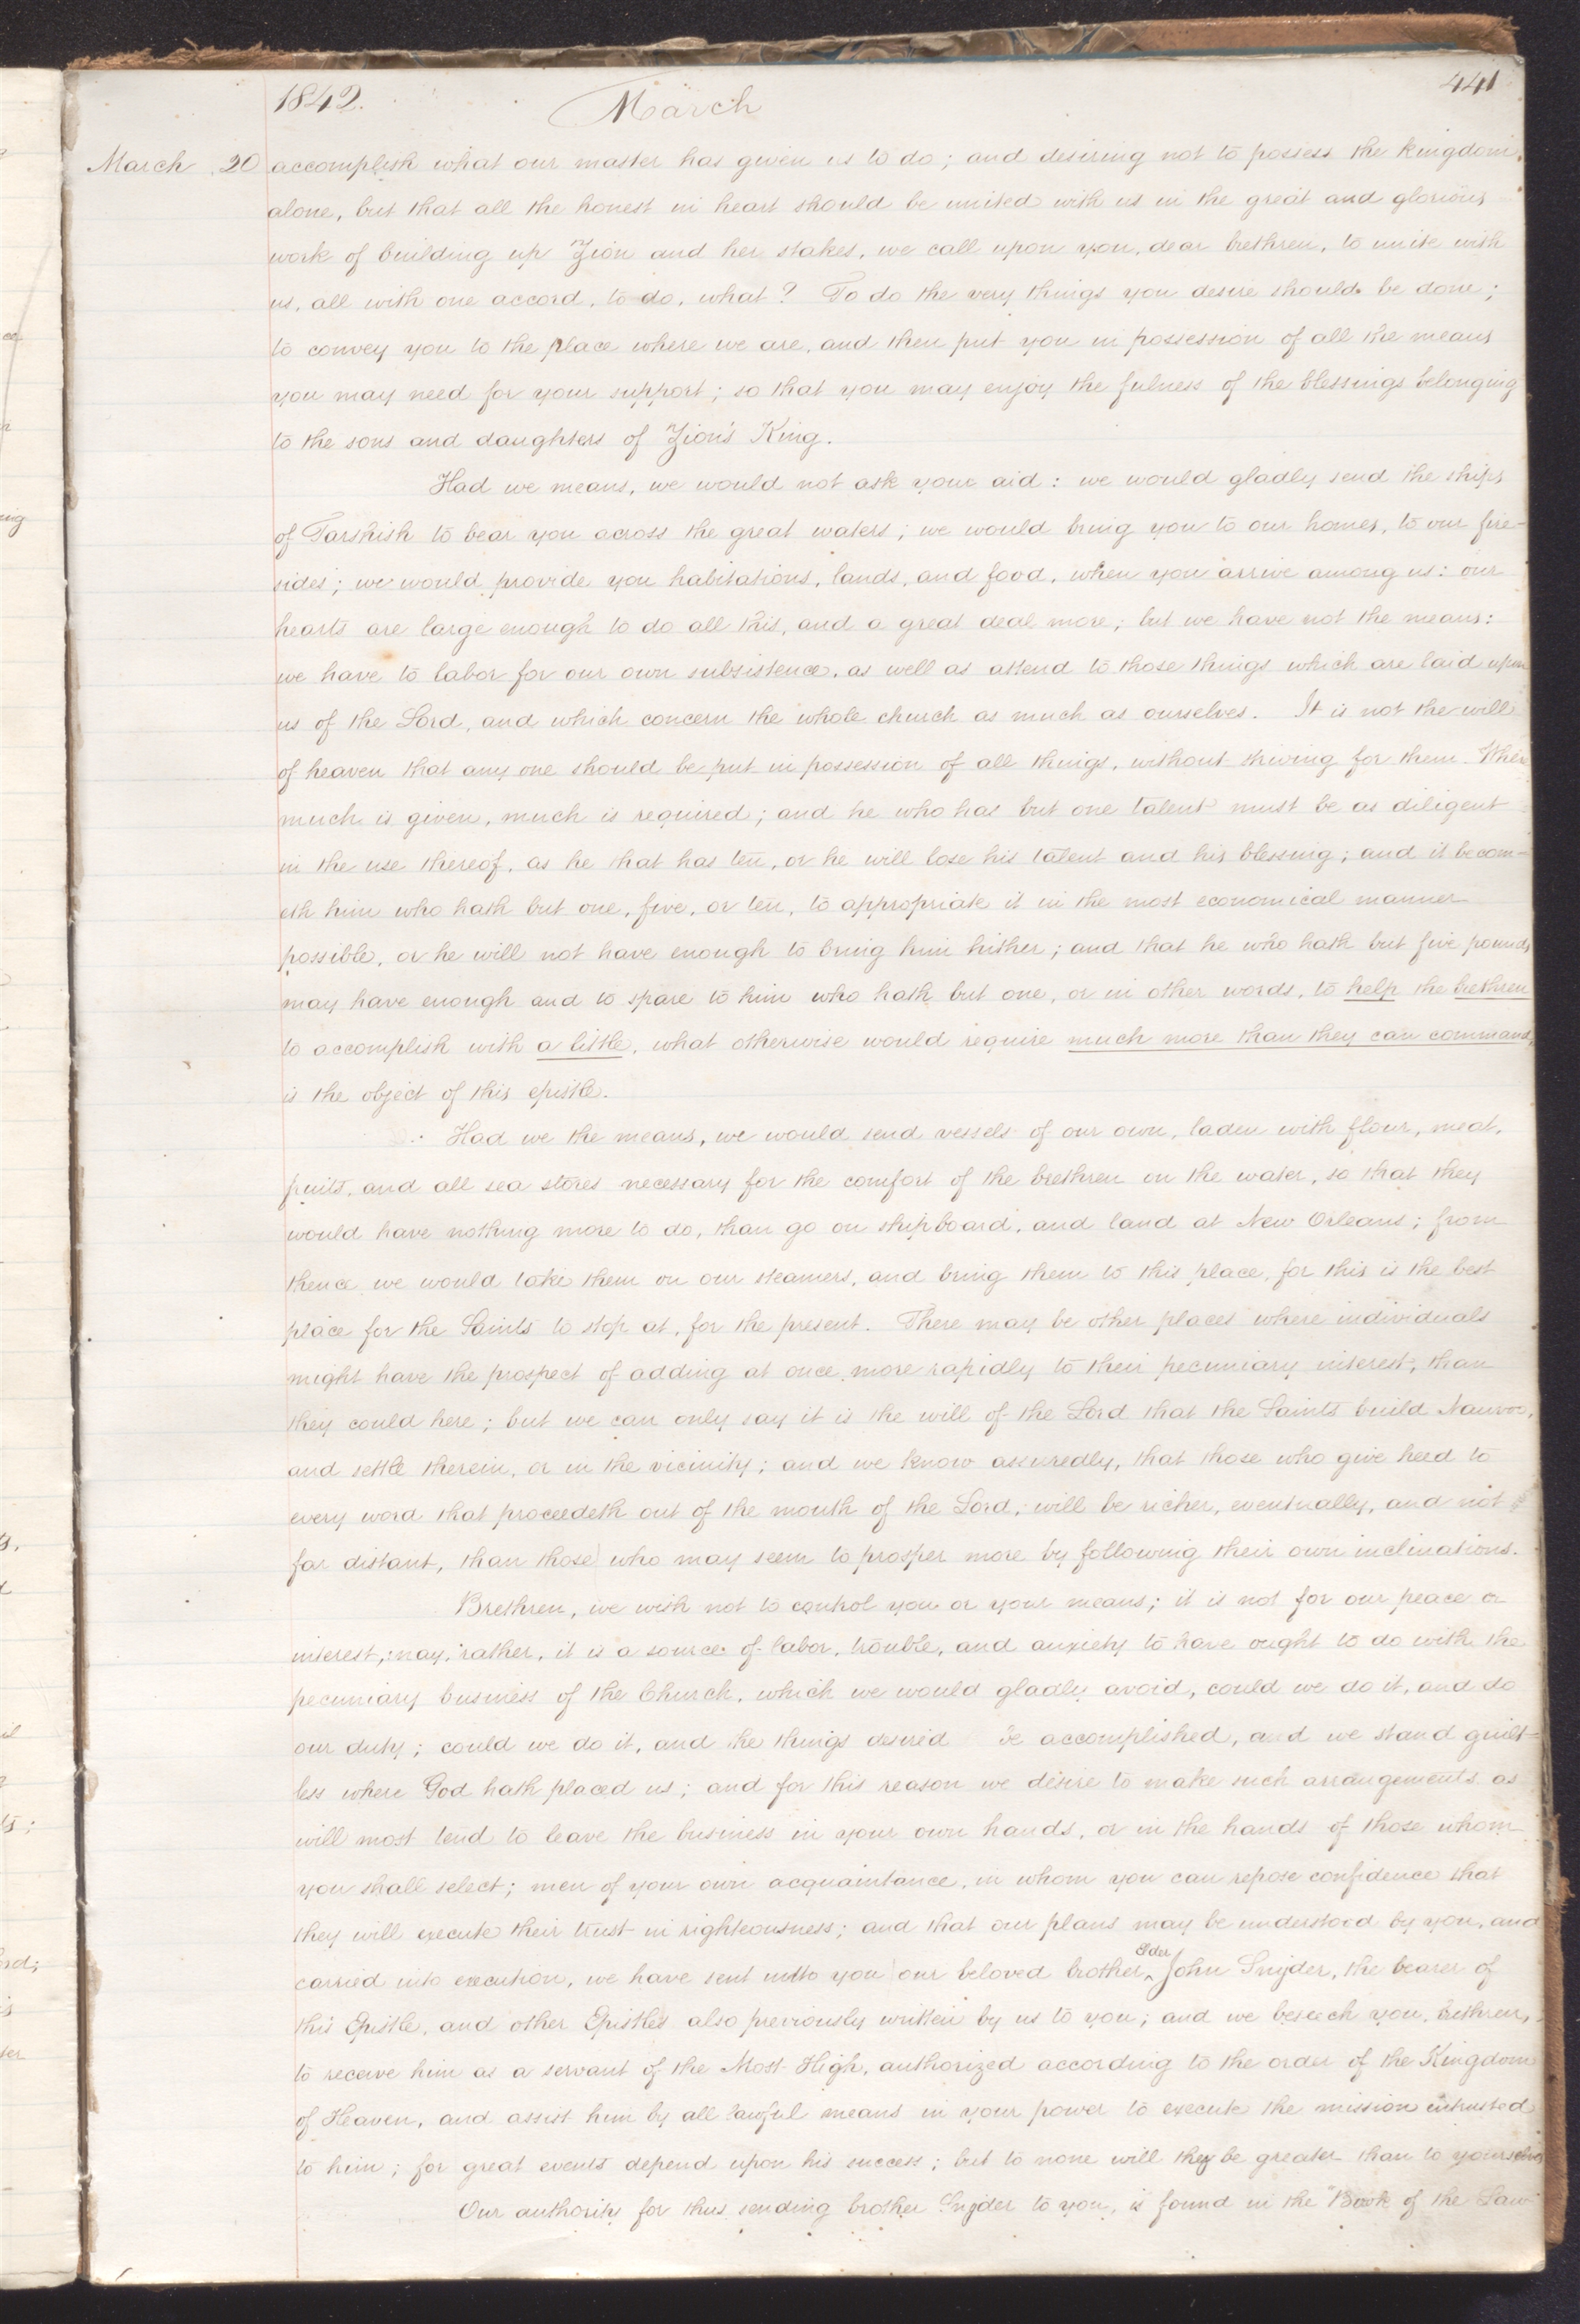 1842. March 441
March 20 accomplish what our master has given us to do; and desiring not to possess the kingdom,
alone, but that all the honest in heart should be united with us in the great and glorious
work of building up Zion and her stakes, we call upon you, dear brethren, to unite with
us, all with one accord, to do, what? To do the very things you desire should be done;
to convey you to the place where we are, and then put you in possession of all the means
you may need for your support; so that you may enjoy the fulness of the blessings belonging
to the sons and daughters of Zion's King.
Had we means, we would not ask your aid: we would gladly send the ships
of Tarshish to bear you across the great waters; we would bring you to our homes, to our fire-
sides; we would provide you habitations, lands, and food, when you arrive among us: our
hearts are large enough to do all this, and a great deal more; but we have not the means:
we have to labor for our own subsistence, as well as attend to those things which are laid upon
us of the Lord, and which concern the whole church as much as ourselves. It is not the will
of heaven that any one should be put in possession of all things, without striving for them. Where
much is given, much is required; and he who has but one talent must be as diligent
in the use thereof, as he that has ten, or he will lose his talent and his blessing; and it becom-
eth him who hath but one, five, or ten, to appropriate it in the most economical manner
possible, or he will not have enough to bring him hither; and that he who hath but five pounds
may have enough and to spare to him who hath but one, or in other words, to help the brethren
to accomplish with a little, what otherwise would require much more than they can command,
is the object of this epistle.
Had we the means, we would send vessels of our own, laden with flour, meat,
fruits, and all sea stores necessary for the comfort of the brethren on the water, so that they
would have nothing more to do, than go on shipboard, and land at New Orleans; from
thence we would take them on our steamers, and bring them to this place, for this is the best
place for the Saints to stop at, for the present. There may be other places where individuals
might have the prospect of adding at once more rapidly to their pecuniary interest, than
they could here; but we can only say it is the will of the Lord that the Saints build Nauvoo,
and settle therein, or in the vicinity; and we know assuredly, that those who give heed to
every word that proceedeth out of the mouth of the Lord, will be richer, eventually, and not
far distant, than those who may seem to prosper more by following their own inclinations.
Brethren, we wish not to control you or your means; it is not for our peace or
interest, nay, rather, it is a source of labor, trouble, and anxiety to have ought to do with the
pecuniary business of the Church, which we would gladly avoid, could we do it, and do
our duty; could we do it, and the things desired be accomplished, and we stand guilt-
less where God hath placed us; and for this reason we desire to make such arrangements as
will most tend to leave the business in your own hands, or in the hands of those whom
you shall select; men of your own acquaintance, in whom you can repose confidence that
they will execute their trust in righteousness; and that our plans may be understood by you, and
carried into execution, we have sent unto you our beloved brother, Elder John Snyder, the bearer of
this Epistle, and other Epistles also previously written by us to you; and we beseech you, brethren,
to receive him as a servant of the Most High, authorized according to the order of the Kingdom
of Heaven, and assist him by all lawful means in your power to execute the mission entrusted
to him; for great events depend upon his success; but to none will they be greater than to yourselves
Our authority for thus sending brother Snyder to you, is found in the "Book of the Law